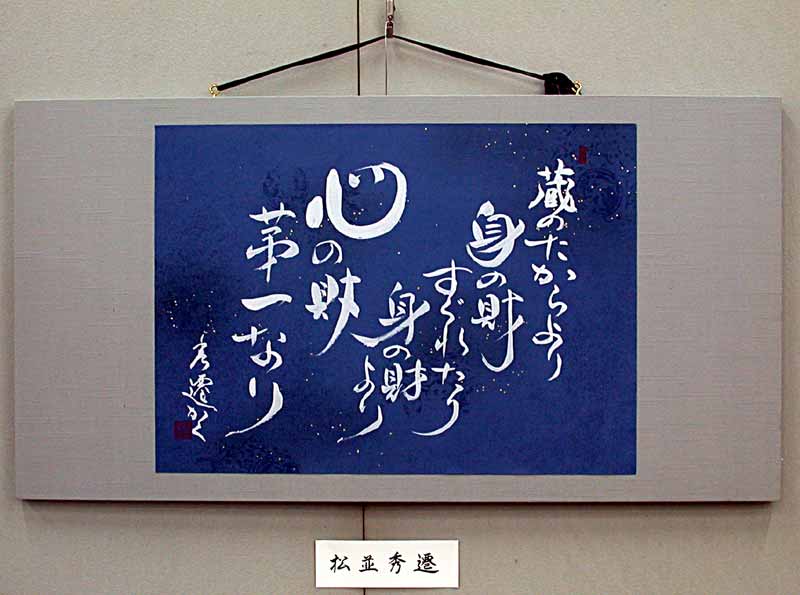 蔵のたからより
身の財
すぐれたり
身の財より
心の財
第一なり
秀遷かく
松並秀遷